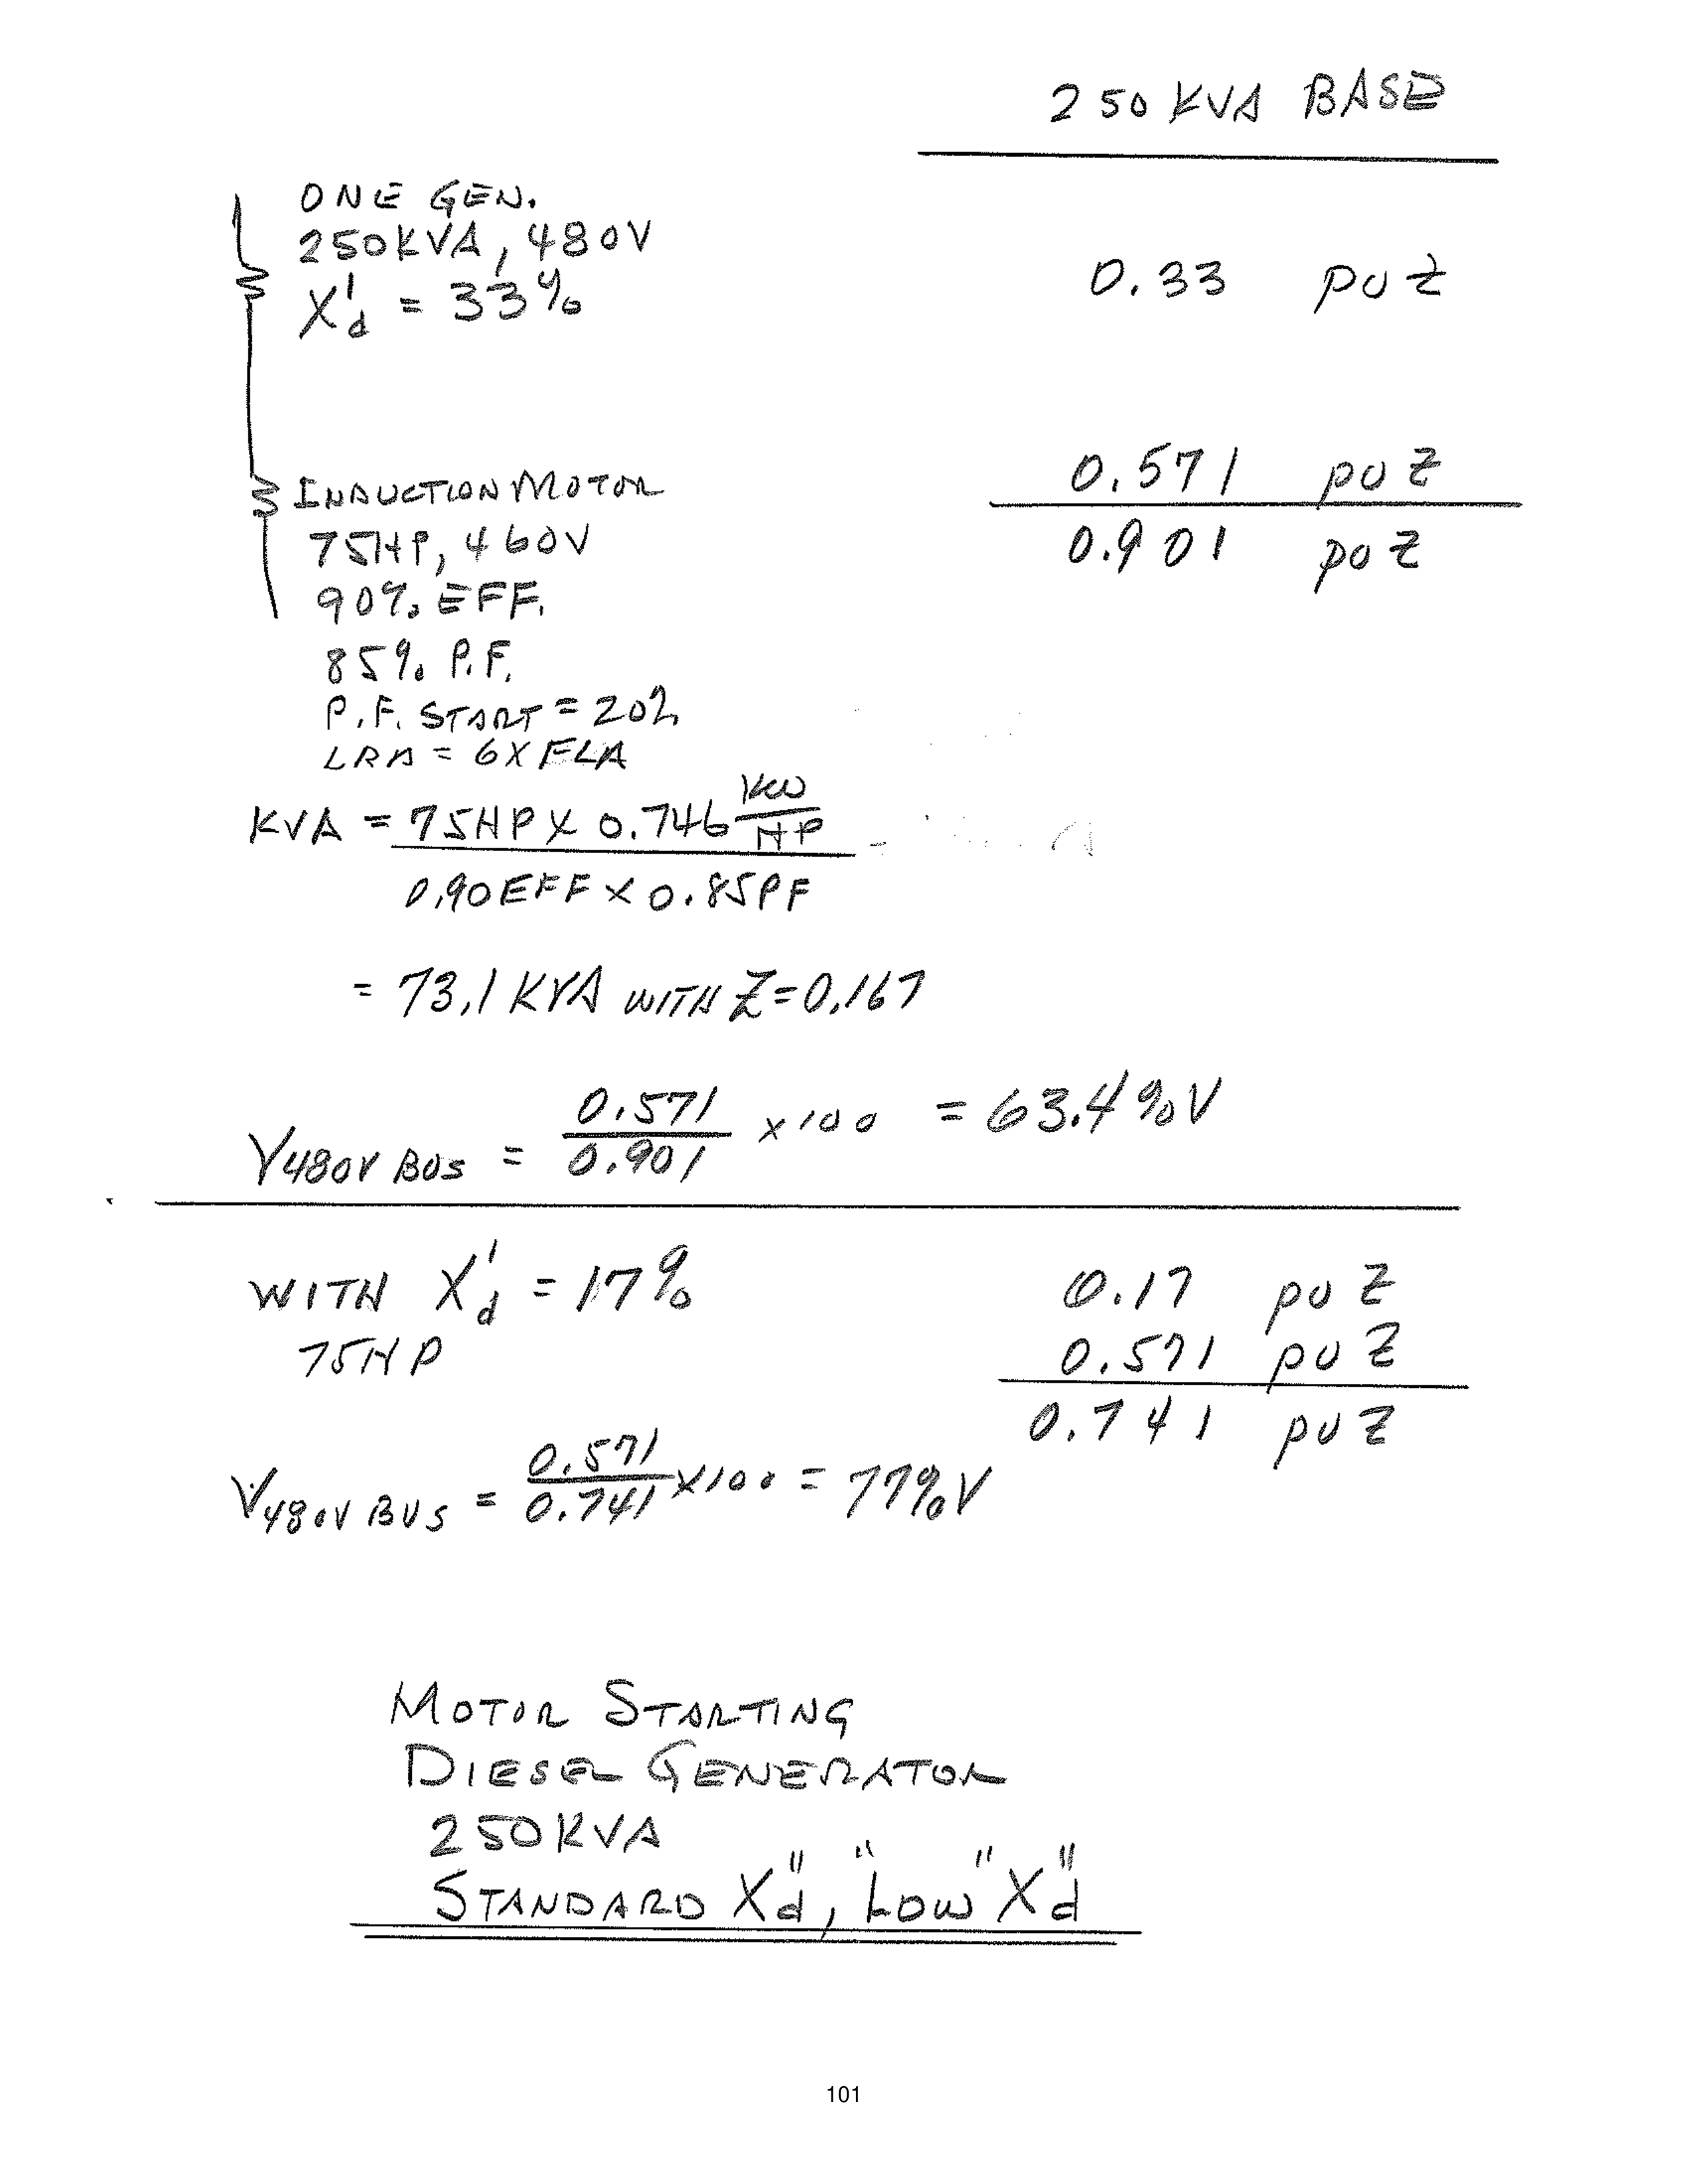 250 KVA BASE
ONE GEN.
250KVA, 480V
X'd = 33%
0.33 pu Z
INDUCTION MOTOR
0.571 pu Z
75HP, 460V
0.901 pu Z
90% EFF.
85% P.F.
P.F. START = 20%
LRA = 6 X FLA
KVA = 75HP X 0.746 KW/HP
0.90 EFF X 0.85 PF
= 73.1 KVA WITH Z = 0.167
V480V BUS = 0.571/0.901 x 100 = 63.4%V
WITH X'd = 17%
0.17 pu Z
75HP
0.571 pu Z
0.741 pu Z
V480V BUS = 0.571/0.741 X 100 = 77%V
MOTOR STARTING
DIESEL GENERATOR
250KVA
STANDARD X"d, "LOW" X"d
101